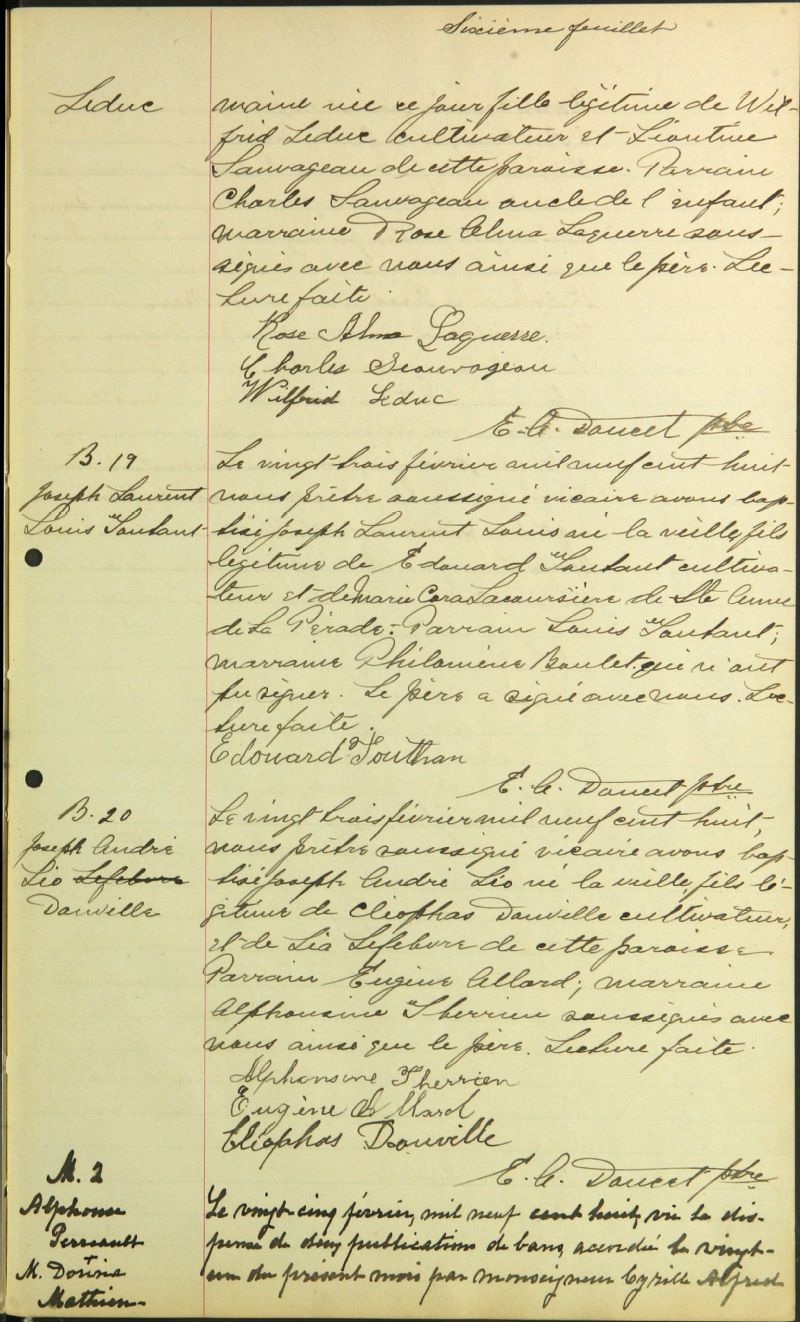 Sixième feuillet
Leduc
maine née ce jour fille légitime de Wil-
frid Leduc cultivateur et Léontine
Sauvageau de cette paroisse. Parrain
Charles Sauvageau oncle de l'enfant;
marraine Rose Alma Laguerre sous-
signés avec nous ainsi que le père. Lec-
ture faite.
Rose Alma Laguerre.
Charles Seauvageau
Wilfrid Leduc
E. A. Doucet ptre
B. 19
Joseph Laurent
Louis Toutant
Le vingt trois février mil neuf cent huit
nous prêtre soussigné vicaire avons bap-
tisé Joseph Laurent Louis né la veille, fils
légitime de Edouard Toutant cultiva-
teur et de Marie Cora Lacoursière de Ste Anne
de La Pérade. Parrain Louis Toutant;
marraine Philomène Boulet qui n'ont
pu signer. Le père a signé avec nous. Lec-
ture faite.
Edouard Touthan
E. A. Doucet ptre
B. 20
Joseph André
Léo Lefebvre
Douville
Le vingt trois février mil neuf cent huit,
nous prêtre soussigné vicaire avons bap-
tisé Joseph André Léo né la veille, fils lé-
gitime de Cléophas Douville cultivateur,
et de Léa Lefebvre de cette paroisse
Parrain Eugène Allard; marraine
Alphonsine Therrien soussignés avec
nous ainsi que le père. Lecture faite.
Alphonsine Therrien
Eugène Allard
Cléophas Douville
E. A. Doucet ptre
M. 2
Alphonse
Perreault
+
M. Dorina
Mathieu
Le vingt-cinq février, mil neuf cent huit, vu la dis-
pense de deux publications de bans, accordée le vingt-
un du présent mois par monseigneur Cyrille Alfred